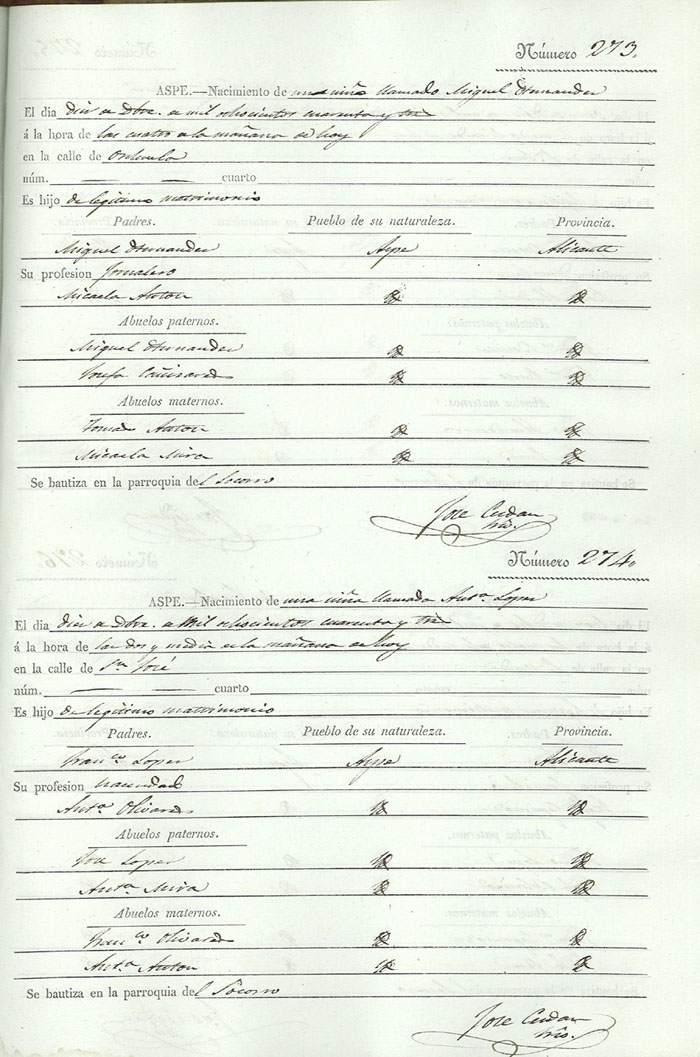 Número 273.
ASPE.—Nacimiento de una niña llamado Miguel Hernandez
El dia diez de Dbre. de mil ochocientos cuarenta y tres
á la hora de las cuatro de la mañana de hoy
en la calle de Orihuela
núm. — — cuarto
Es hijo de legitimo matrimonio
Padres. Pueblo de su naturaleza. Provincia.
Miguel Hernandez Aspe Alicante
Su profesion Jornalero
Micaela Anton
Abuelos paternos.
Miguel Hernandez
Josefa Cañizares
Abuelos maternos.
Tomas Anton
Micaela Mira
Se bautiza en la parroquia del Socorro
Jose
Número 274.
ASPE.—Nacimiento de una niña llamada Antª Lopez
El dia diez de Dbre. de Mil ochocientos cuarenta y tres
á la hora de las dos y media de la mañana de hoy
en la calle de Sn José
núm. — — cuarto
Es hijo de legitimo matrimonio
Padres. Pueblo de su naturaleza. Provincia.
Franco Lopez Aspe Alicante
Su profesion hacendado
Antª Olivares
Abuelos paternos.
Lopez
Antª Mira
Abuelos maternos.
Franco Olivares
Antª Anton
Se bautiza en la parroquia del Socorro
Jose